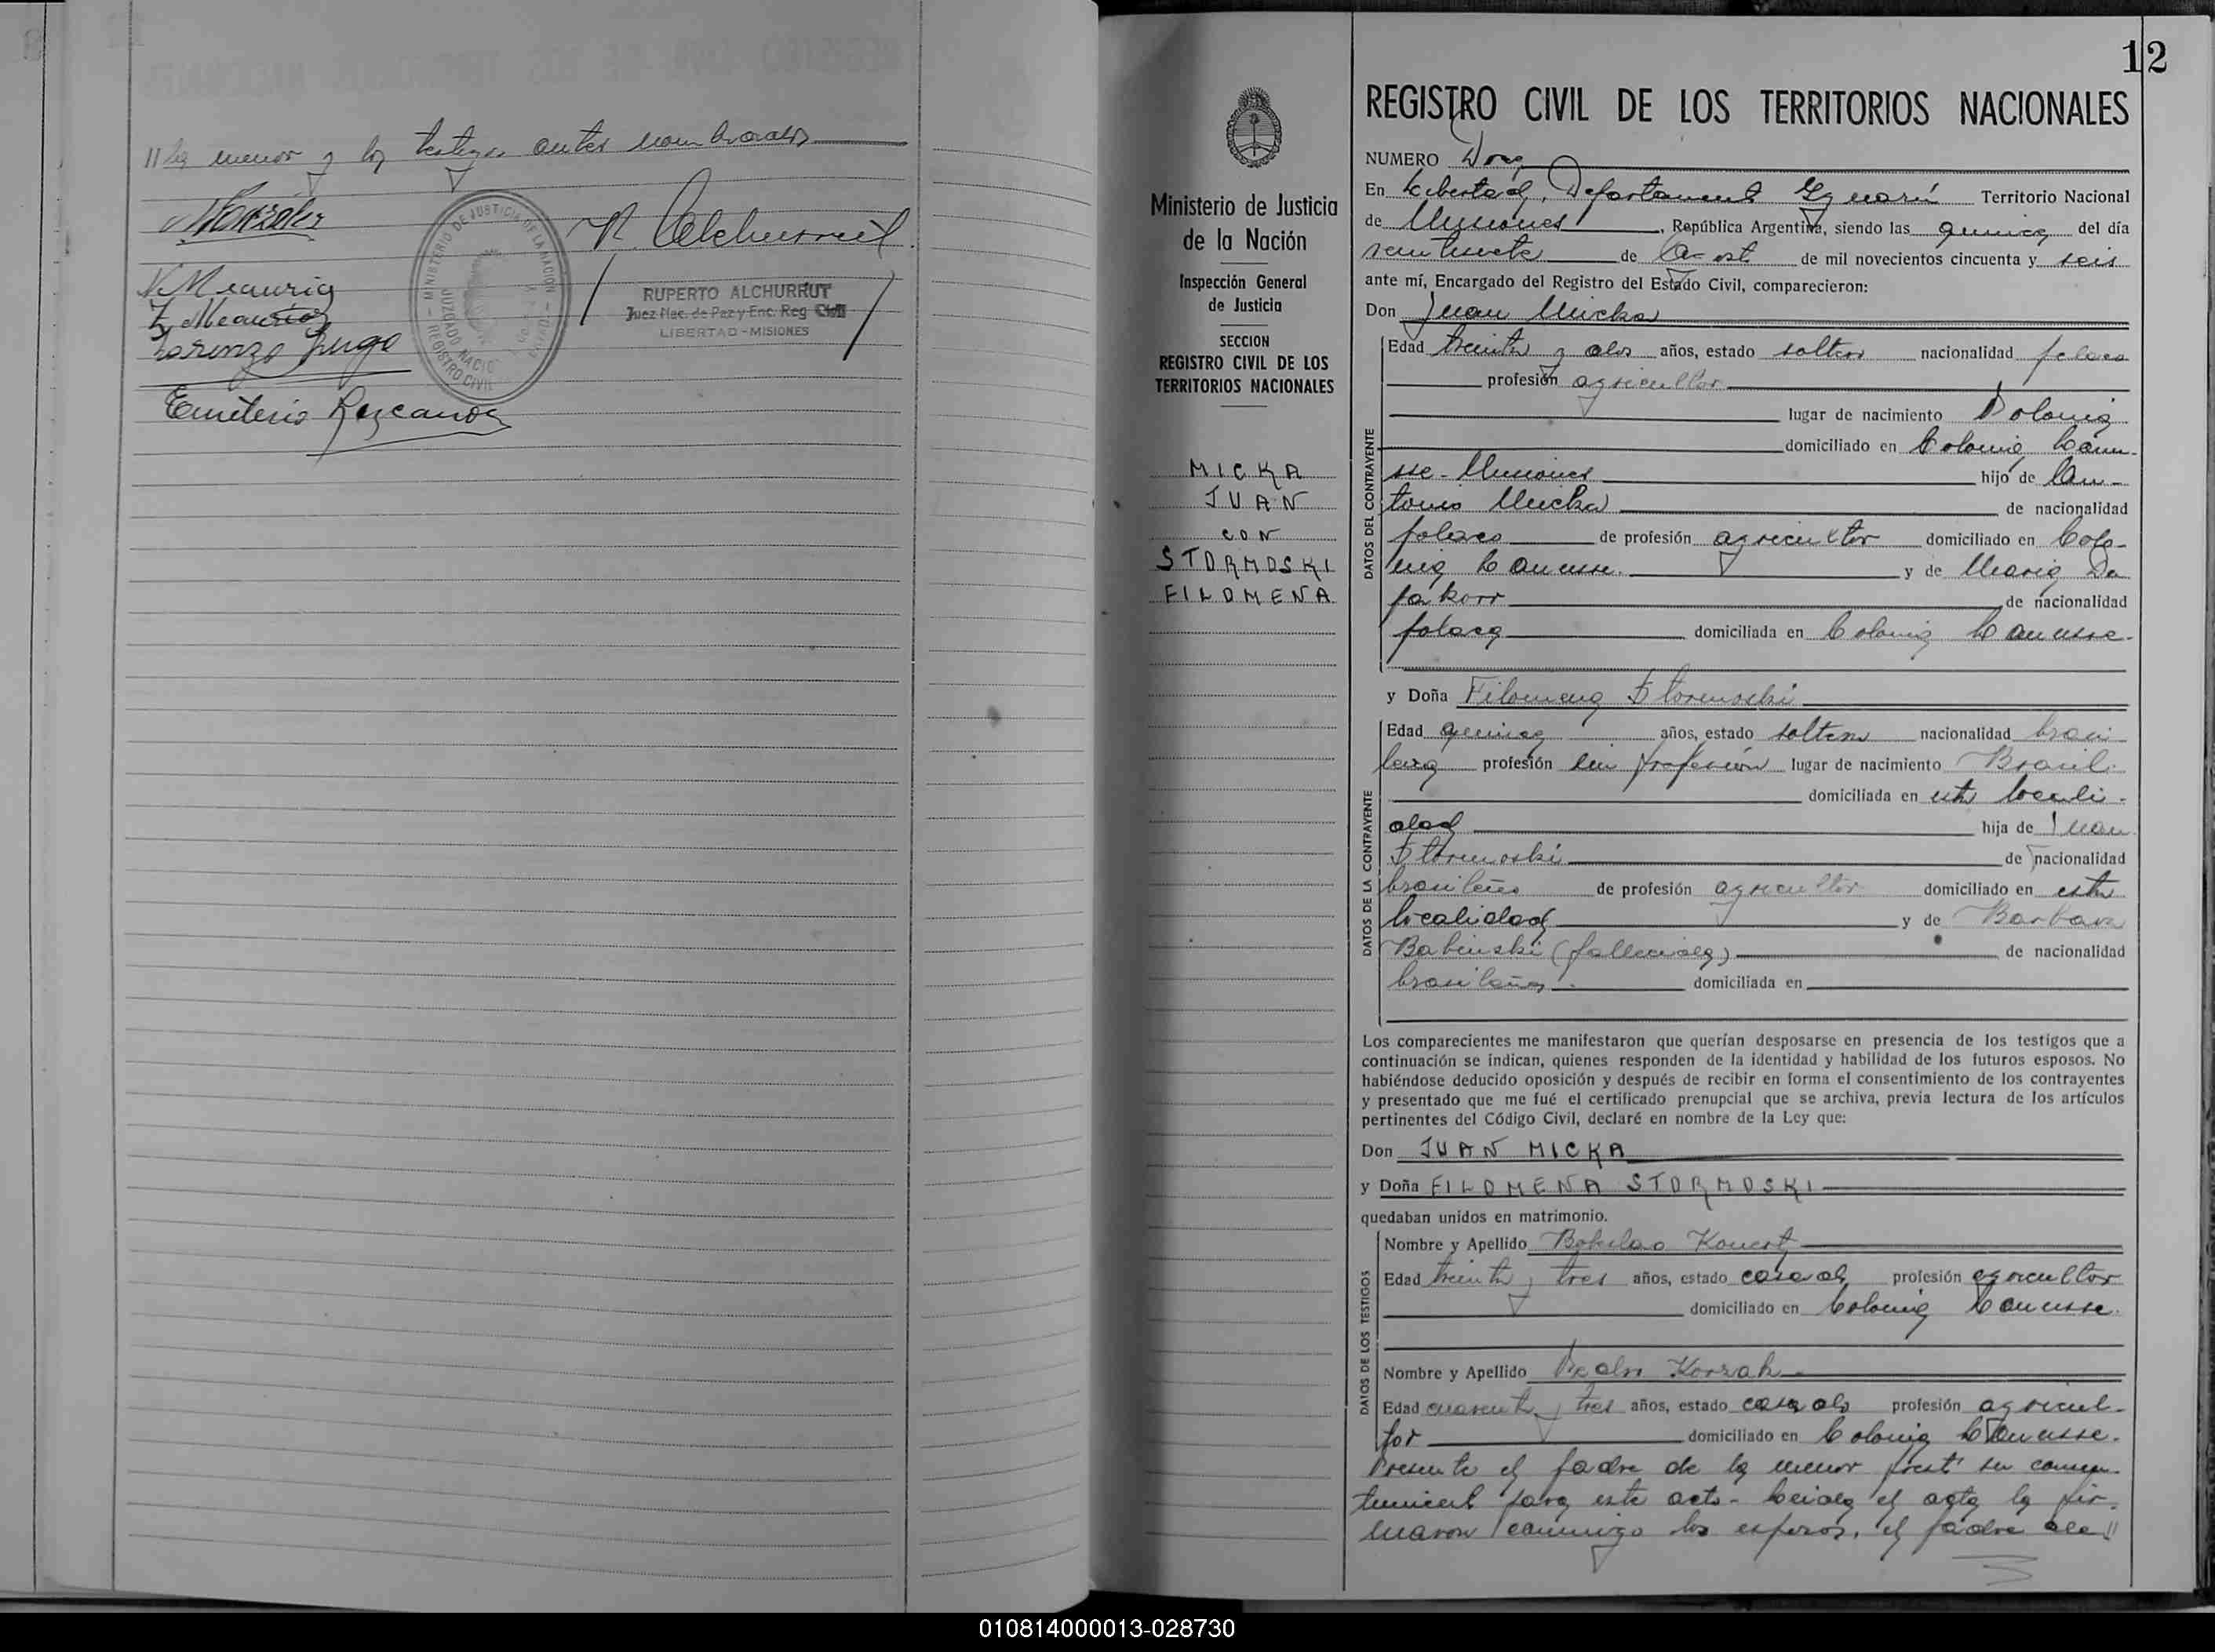 // la menor y los testigos antes nombrados
R Alchurrut
RUPERTO ALCHURRUT
Juez Nac. de Paz y Enc. Reg. Civil
LIBERTAD - MISIONES
MINISTERIO DE JUSTICIA DE LA NACION
REGISTRO CIVIL
Lorenzo Lugo
Emeterio Lezcano
12
Ministerio de Justicia
de la Nación
Inspección General
de Justicia
SECCION
REGISTRO CIVIL DE LOS
TERRITORIOS NACIONALES
MICKA
JUAN
CON
STORMOSKI
FILOMENA
REGISTRO CIVIL DE LOS TERRITORIOS NACIONALES
NUMERO Doce
En Libertad, Departamento Iguazú Territorio Nacional
de Misiones, República Argentina, siendo las quince del día
veintisiete de Agosto de mil novecientos cincuenta y seis
ante mí, Encargado del Registro del Estado Civil, comparecieron:
Don Juan Micka
DATOS DEL CONTRAYENTE
Edad treinta y dos años, estado soltero nacionalidad polaco
profesión agricultor
lugar de nacimiento Polonia
domiciliado en Colonia Lanu-
sse - Misiones hijo de An-
tonio Micka de nacionalidad
polaco de profesión agricultor domiciliado en Colo-
nia Lanusse. y de Maria
de nacionalidad
polaca domiciliada en Colonia Lanusse.
y Doña Filomena Stormoski
DATOS DE LA CONTRAYENTE
Edad quince años, estado soltera nacionalidad brasi
leña profesión sin profesión lugar de nacimiento Brasil.
domiciliada en esta locali-
dad hija de Juan
Stormoski de nacionalidad
brasileño de profesión agricultor domiciliado en esta
localidad y de Barbara
Babinski (fallecida) de nacionalidad
brasileña. domiciliada en
Los comparecientes me manifestaron que querían desposarse en presencia de los testigos que a
continuación se indican, quienes responden de la identidad y habilidad de los futuros esposos. No
habiéndose deducido oposición y después de recibir en forma el consentimiento de los contrayentes
y presentado que me fué el certificado prenupcial que se archiva, previa lectura de los artículos
pertinentes del Código Civil, declaré en nombre de la Ley que:
Don JUAN MICKA
y Doña FILOMENA STORMOSKI
quedaban unidos en matrimonio.
DATOS DE LOS TESTIGOS
Nombre y Apellido
Edad treinta y tres años, estado casado profesión agricultor
domiciliado en Colonia Lanusse.
Nombre y Apellido Pedro Korzak
Edad cuarenta y tres años, estado casado profesión agricul-
tor domiciliado en Colonia Lanusse.
Presente el padre de la menor prestó su consen-
timiento para este acto - Leida el acta la fir-
maron conmigo los esposos, el padre de //
010814000013-028730